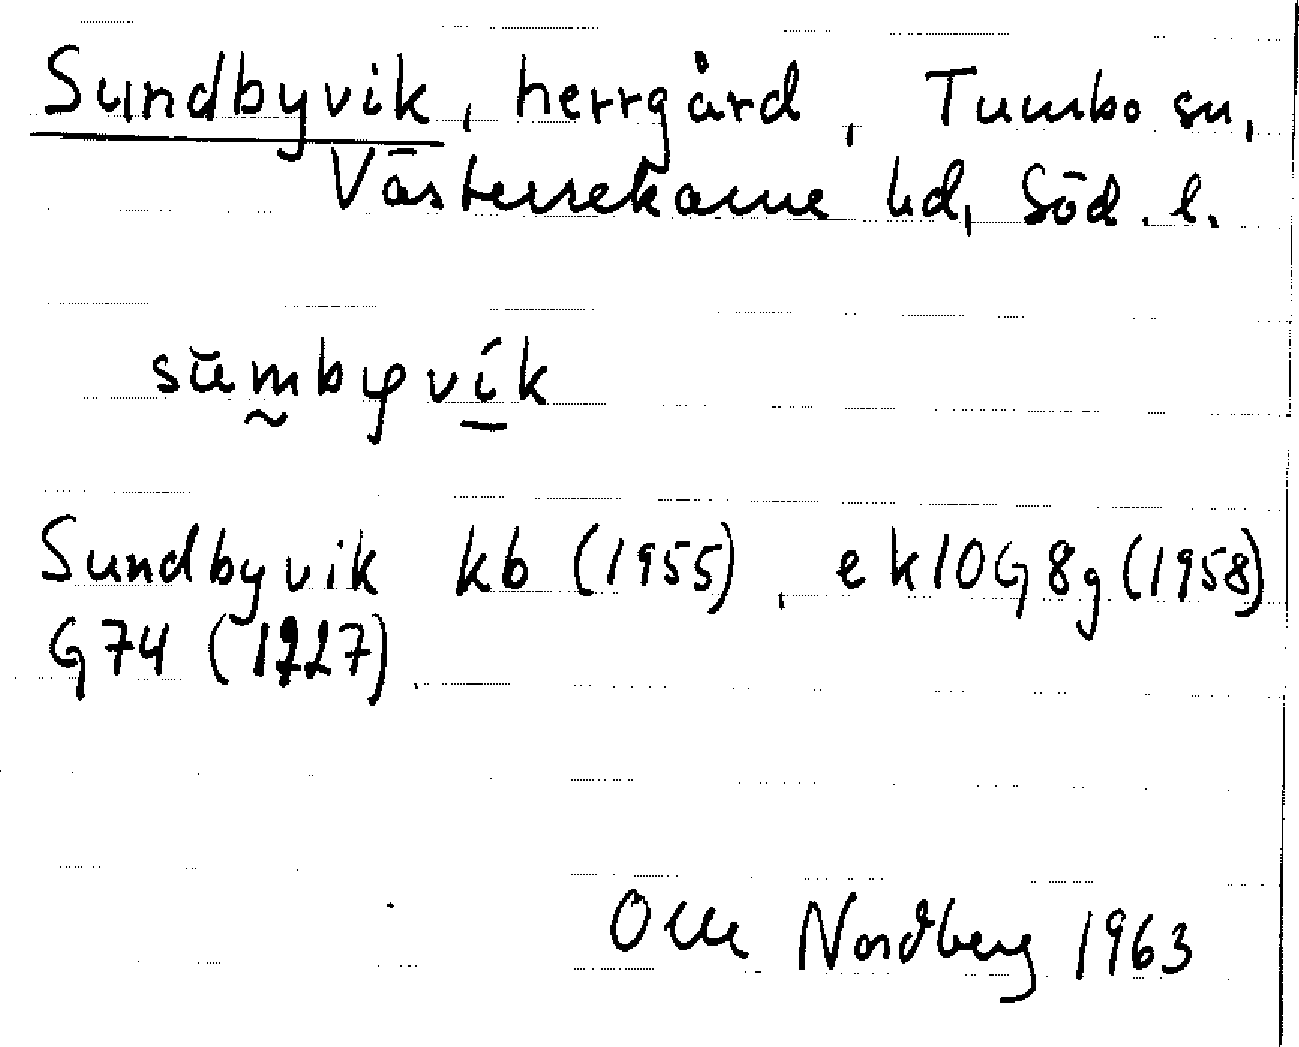 Sundbyvik, herrgård, Tumbo sn,
Västerrekarne hd, Söd. l.
sŭmbyvík
Sundbyvik kb (1955), ek10G8g (1958)
G74 (1727)
Olle Nordberg 1963